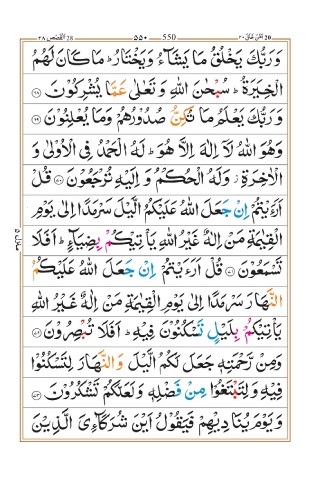 القصص ٢٨ 28 ٥٥٠ 550 امن خلق ٢٠ 20
وَرَبُّكَ يَخْلُقُ مَا يَشَآءُ وَيَخْتَارُ ؕ مَا كَانَ لَهُمُ
الْخِيَرَةُ ؕ سُبْحٰنَ اللّٰهِ وَ تَعٰلٰى عَمَّا يُشْرِكُوْنَ ﴿۶۸﴾
وَرَبُّكَ يَعْلَمُ مَا تُكِنُّ صُدُوْرُهُمْ وَمَا يُعْلِنُوْنَ ﴿۶۹﴾
وَهُوَ اللّٰهُ لَاۤ اِلٰهَ اِلَّا هُوَ ؕ لَهُ الْحَمْدُ فِى الْاُوْلٰى وَ
الْاٰخِرَةِ ز وَلَهُ الْحُكْمُ وَ اِلَيْهِ تُرْجَعُوْنَ ﴿۷۰﴾ قُلْ
اَرَءَيْتُمْ اِنْ جَعَلَ اللّٰهُ عَلَيْكُمُ الَّيْلَ سَرْمَدًا اِلٰى يَوْمِ
الْقِيٰمَةِ مَنْ اِلٰهٌ غَيْرُ اللّٰهِ يَاْتِيْكُمْ بِضِيَآءٍ ؕ اَفَلَا
تَسْمَعُوْنَ ﴿۷۱﴾ قُلْ اَرَءَيْتُمْ اِنْ جَعَلَ اللّٰهُ عَلَيْكُمُ
النَّهَارَ سَرْمَدًا اِلٰى يَوْمِ الْقِيٰمَةِ مَنْ اِلٰهٌ غَيْرُ اللّٰهِ
يَاْتِيْكُمْ بِلَيْلٍ تَسْكُنُوْنَ فِيْهِ ؕ اَفَلَا تُبْصِرُوْنَ ﴿۷۲﴾
وَمِنْ رَّحْمَتِهٖ جَعَلَ لَكُمُ الَّيْلَ وَالنَّهَارَ لِتَسْكُنُوْا
فِيْهِ وَلِتَبْتَغُوْا مِنْ فَضْلِهٖ وَلَعَلَّكُمْ تَشْكُرُوْنَ ﴿۷۳﴾
وَيَوْمَ يُنَادِيْهِمْ فَيَقُوْلُ اَيْنَ شُرَكَآءِىَ الَّذِيْنَ